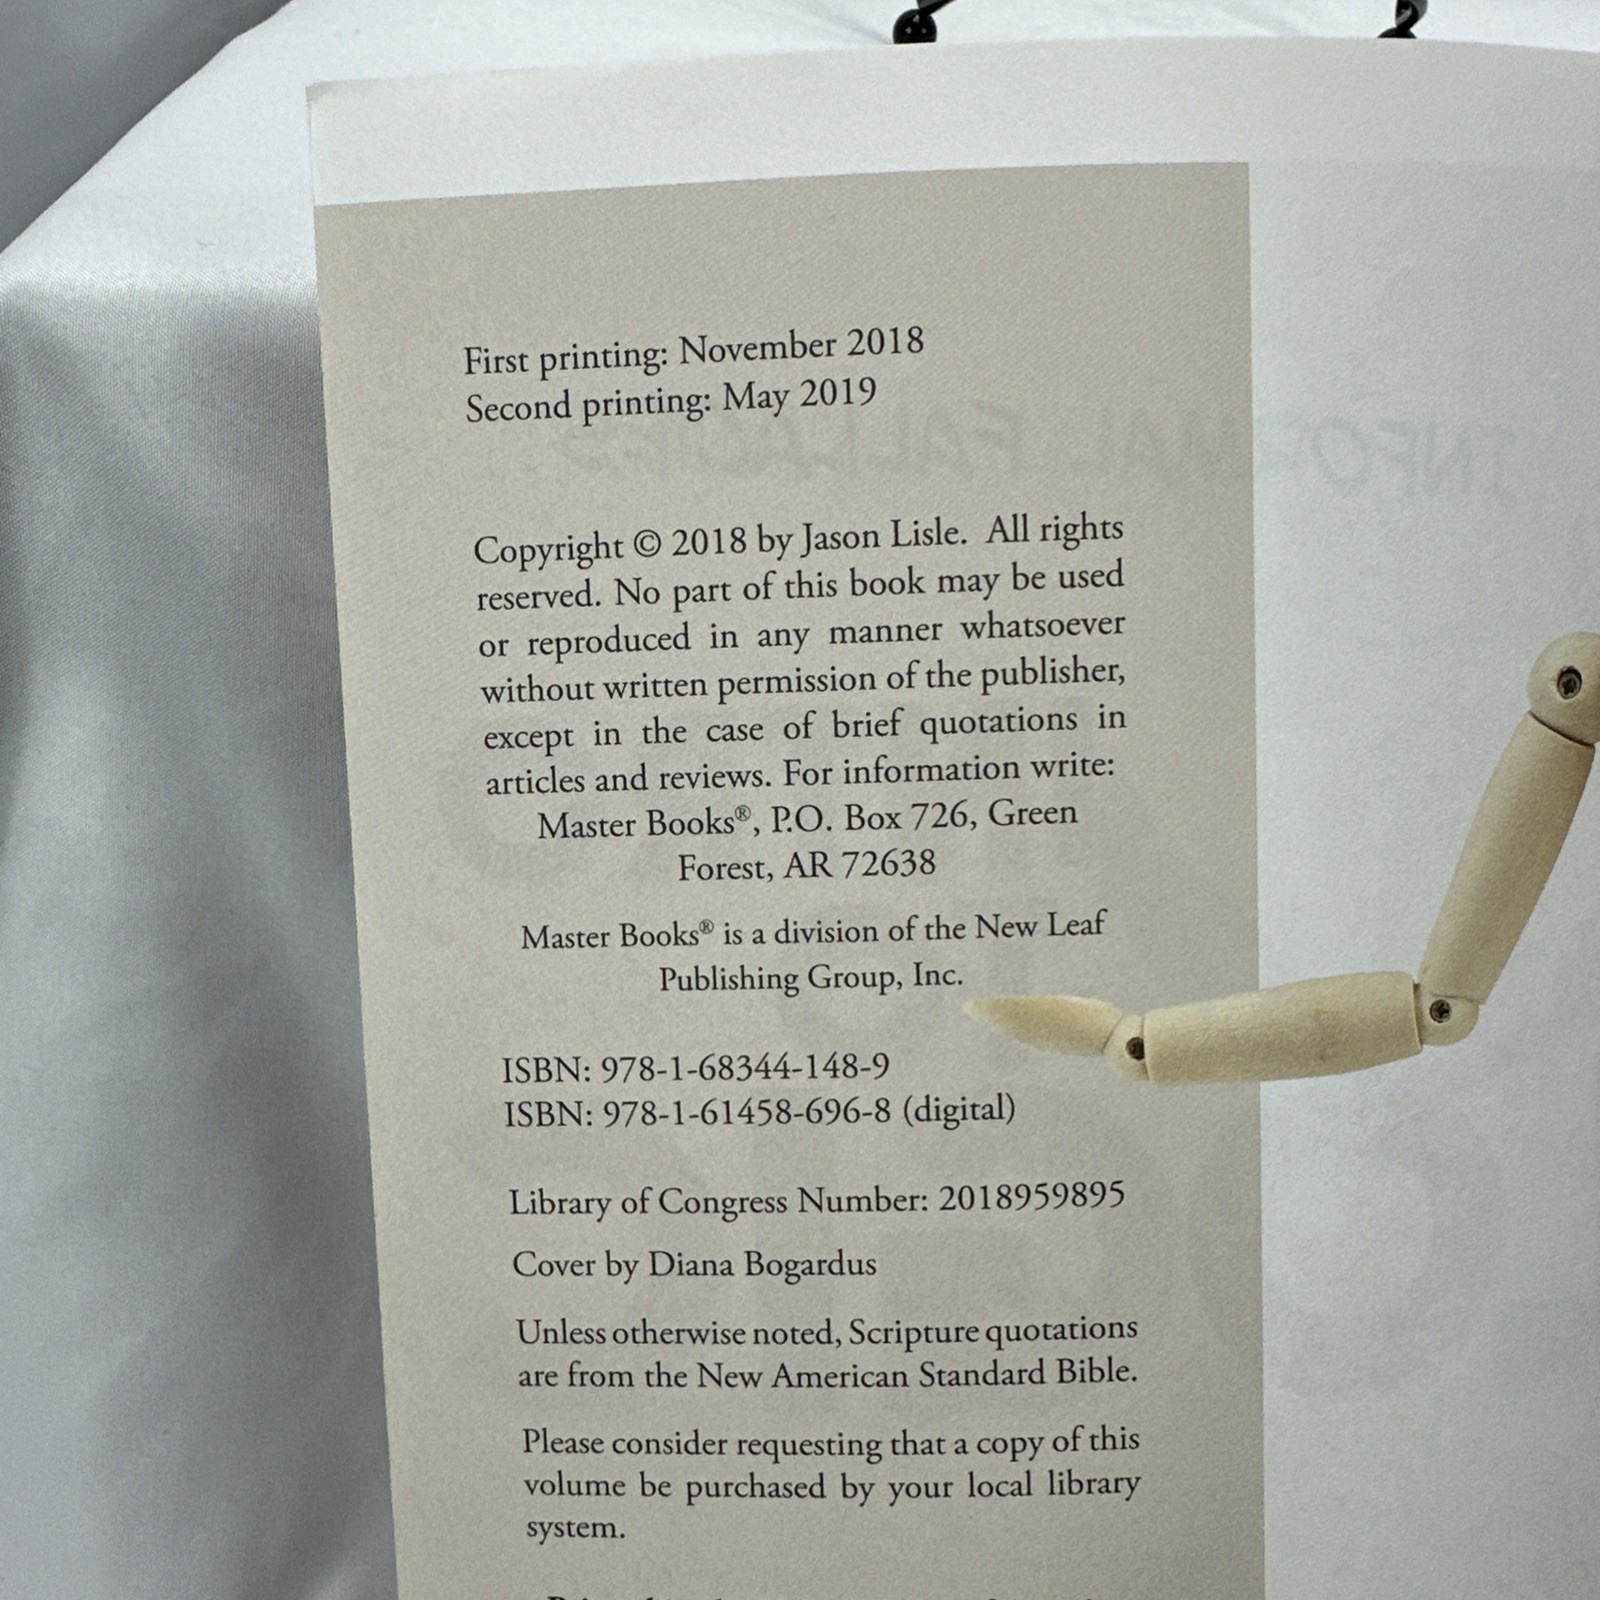 First printing: November 2018
Second printing: May 2019
Copyright © 2018 by Jason Lisle. All rights
reserved. No part of this book may be used
or reproduced in any manner whatsoever
without written permission of the publisher,
except in the case of brief quotations in
articles and reviews. For information write:
Master Books®, P.O. Box 726, Green
Forest, AR 72638
Master Books® is a division of the New Leaf
Publishing Group, Inc.
ISBN: 978-1-68344-148-9
ISBN: 978-1-61458-696-8 (digital)
Library of Congress Number: 2018959895
Cover by Diana Bogardus
Unless otherwise noted, Scripture quotations
are from the New American Standard Bible.
Please consider requesting that a copy of this
volume be purchased by your local library
system.